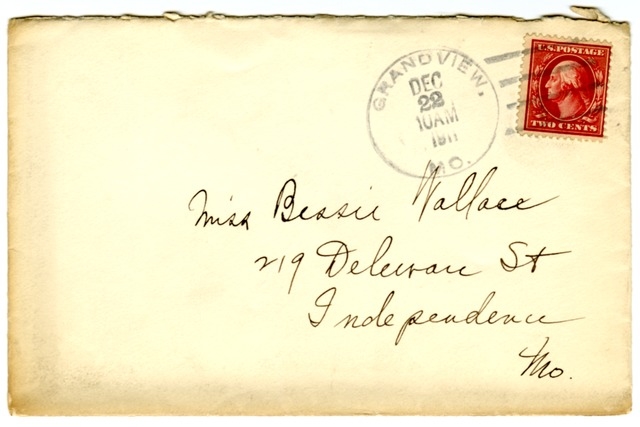 GRANDVIEW,
DEC
22
10AM
1911
MO.
U.S. POSTAGE
TWO CENTS
Miss Bessie Wallace
219 Delewan St
Independence
Mo.